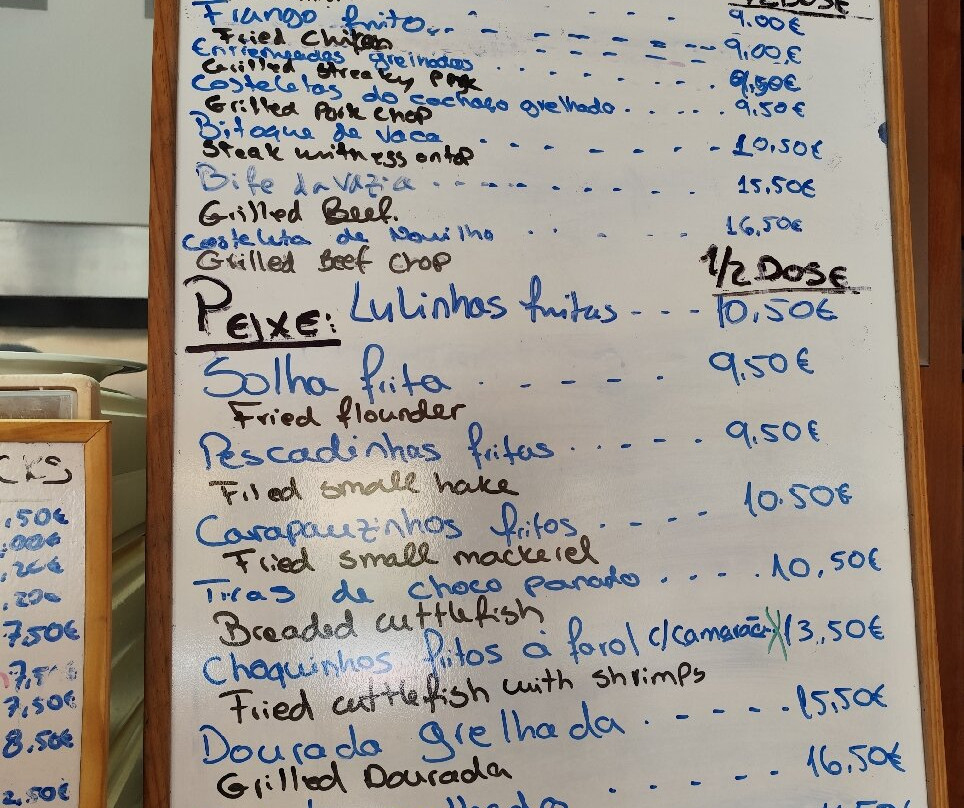 1/2 DOSE
Frango frito... 9.00€
Fried Chiken
Entremeadas grelhadas 9,00€
Grilled streaky Pork
Costeletas do cachaço grelhado.... 9,50€
Grilled Pork Chop
9,50€
Bitoque de vaca 10,50€
Steak ontop
Bife da vazia 15,50€
Grilled Beef.
Costeleta de Novilho 16,50€
Grilled Beef Chop
1/2 DOSE
PEIXE: Lulinhas fritas --- 10,50€
Solha frita 9,50€
Fried flounder
Pescadinhas fritas 9,50€
Fried small hake
Carapauzinhos fritos 10.50€
Fried small mackerel
Tiras de choco panado .... 10,50€
Breaded cuttlefish
Choquinhos fritos à farol c/camarão 13,50€
Fried cuttlefish with shrimps
Dourada grelhada 15,50€
Grilled Dourada
16,50€
CKS
,50€
,00€
,20€
7,50€
7,50€
8,50€
2,50€